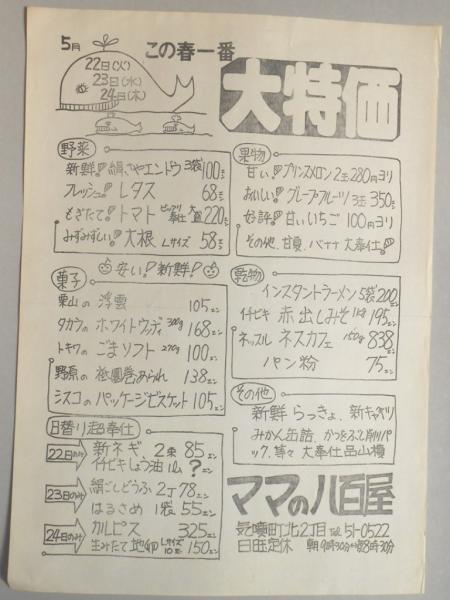 5月
22日(火)
23日(水)
24日(木)
この春一番
大特価
野菜
新鮮!絹さやエンドウ 3袋100エン
フレッシュ!レタス 68エン
もぎたて!トマト ビックリ奉仕 大皿220エン
みずみずしい!大根 Lサイズ 58エン
果物
甘い!プリンスメロン 2玉280円ヨリ
おいしい!グレープフルーツ 3玉350エン
好評!甘いいちご 100円ヨリ
その他、甘夏、バナナ 大奉仕!
菓子
安い!新鮮!
栗山の 浮雲 105エン
タカラの ホワイトウッディ 300g 168エン
トキワの ごまソフト 270g 100エン
野原の 祇園巻あられ 138エン
シスコの パッケージビスケット 105エン
乾物
インスタントラーメン 5袋200エン
イチビキ 赤出しみそ 1kg 195エン
ネッスル ネスカフェ 150g 838エン
パン粉 75エン
その他
新鮮 らっきょ、新キャベツ
みかん缶詰、かつをぶし削りパ
ック、等々 大奉仕品山積
日替り超奉仕
22日のみ 新ネギ 2束 85エン
イチビキしょう油 1.8L ?エン
23日のみ 絹ごしどうふ 2丁78エン
はるさめ 1袋 55エン
24日のみ カルピス 325エン
生みたて地卵 Lサイズ 10コ 150エン
ママの八百屋
町北2丁目 Tel 51-0522
日曜定休 朝9時30分〜8時30分